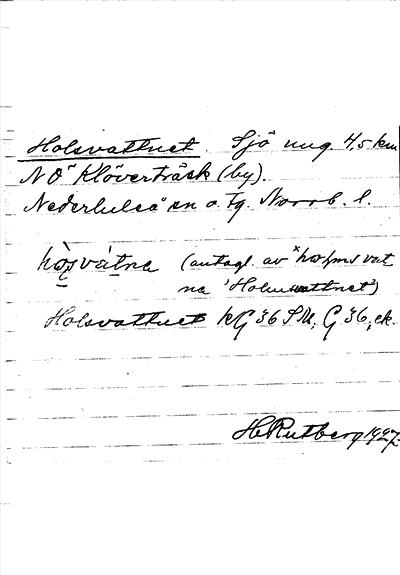 Holsvattnet. Sjö ung. 4,5 km
NÖ Klöverträsk (by).
Nederluleå sn o. tg. Norrb. l.
(antagl. av
na 'Holmvattnet')
Holsvattnet kG 36 SM, G 36, ek.
H Rutberg 1927.